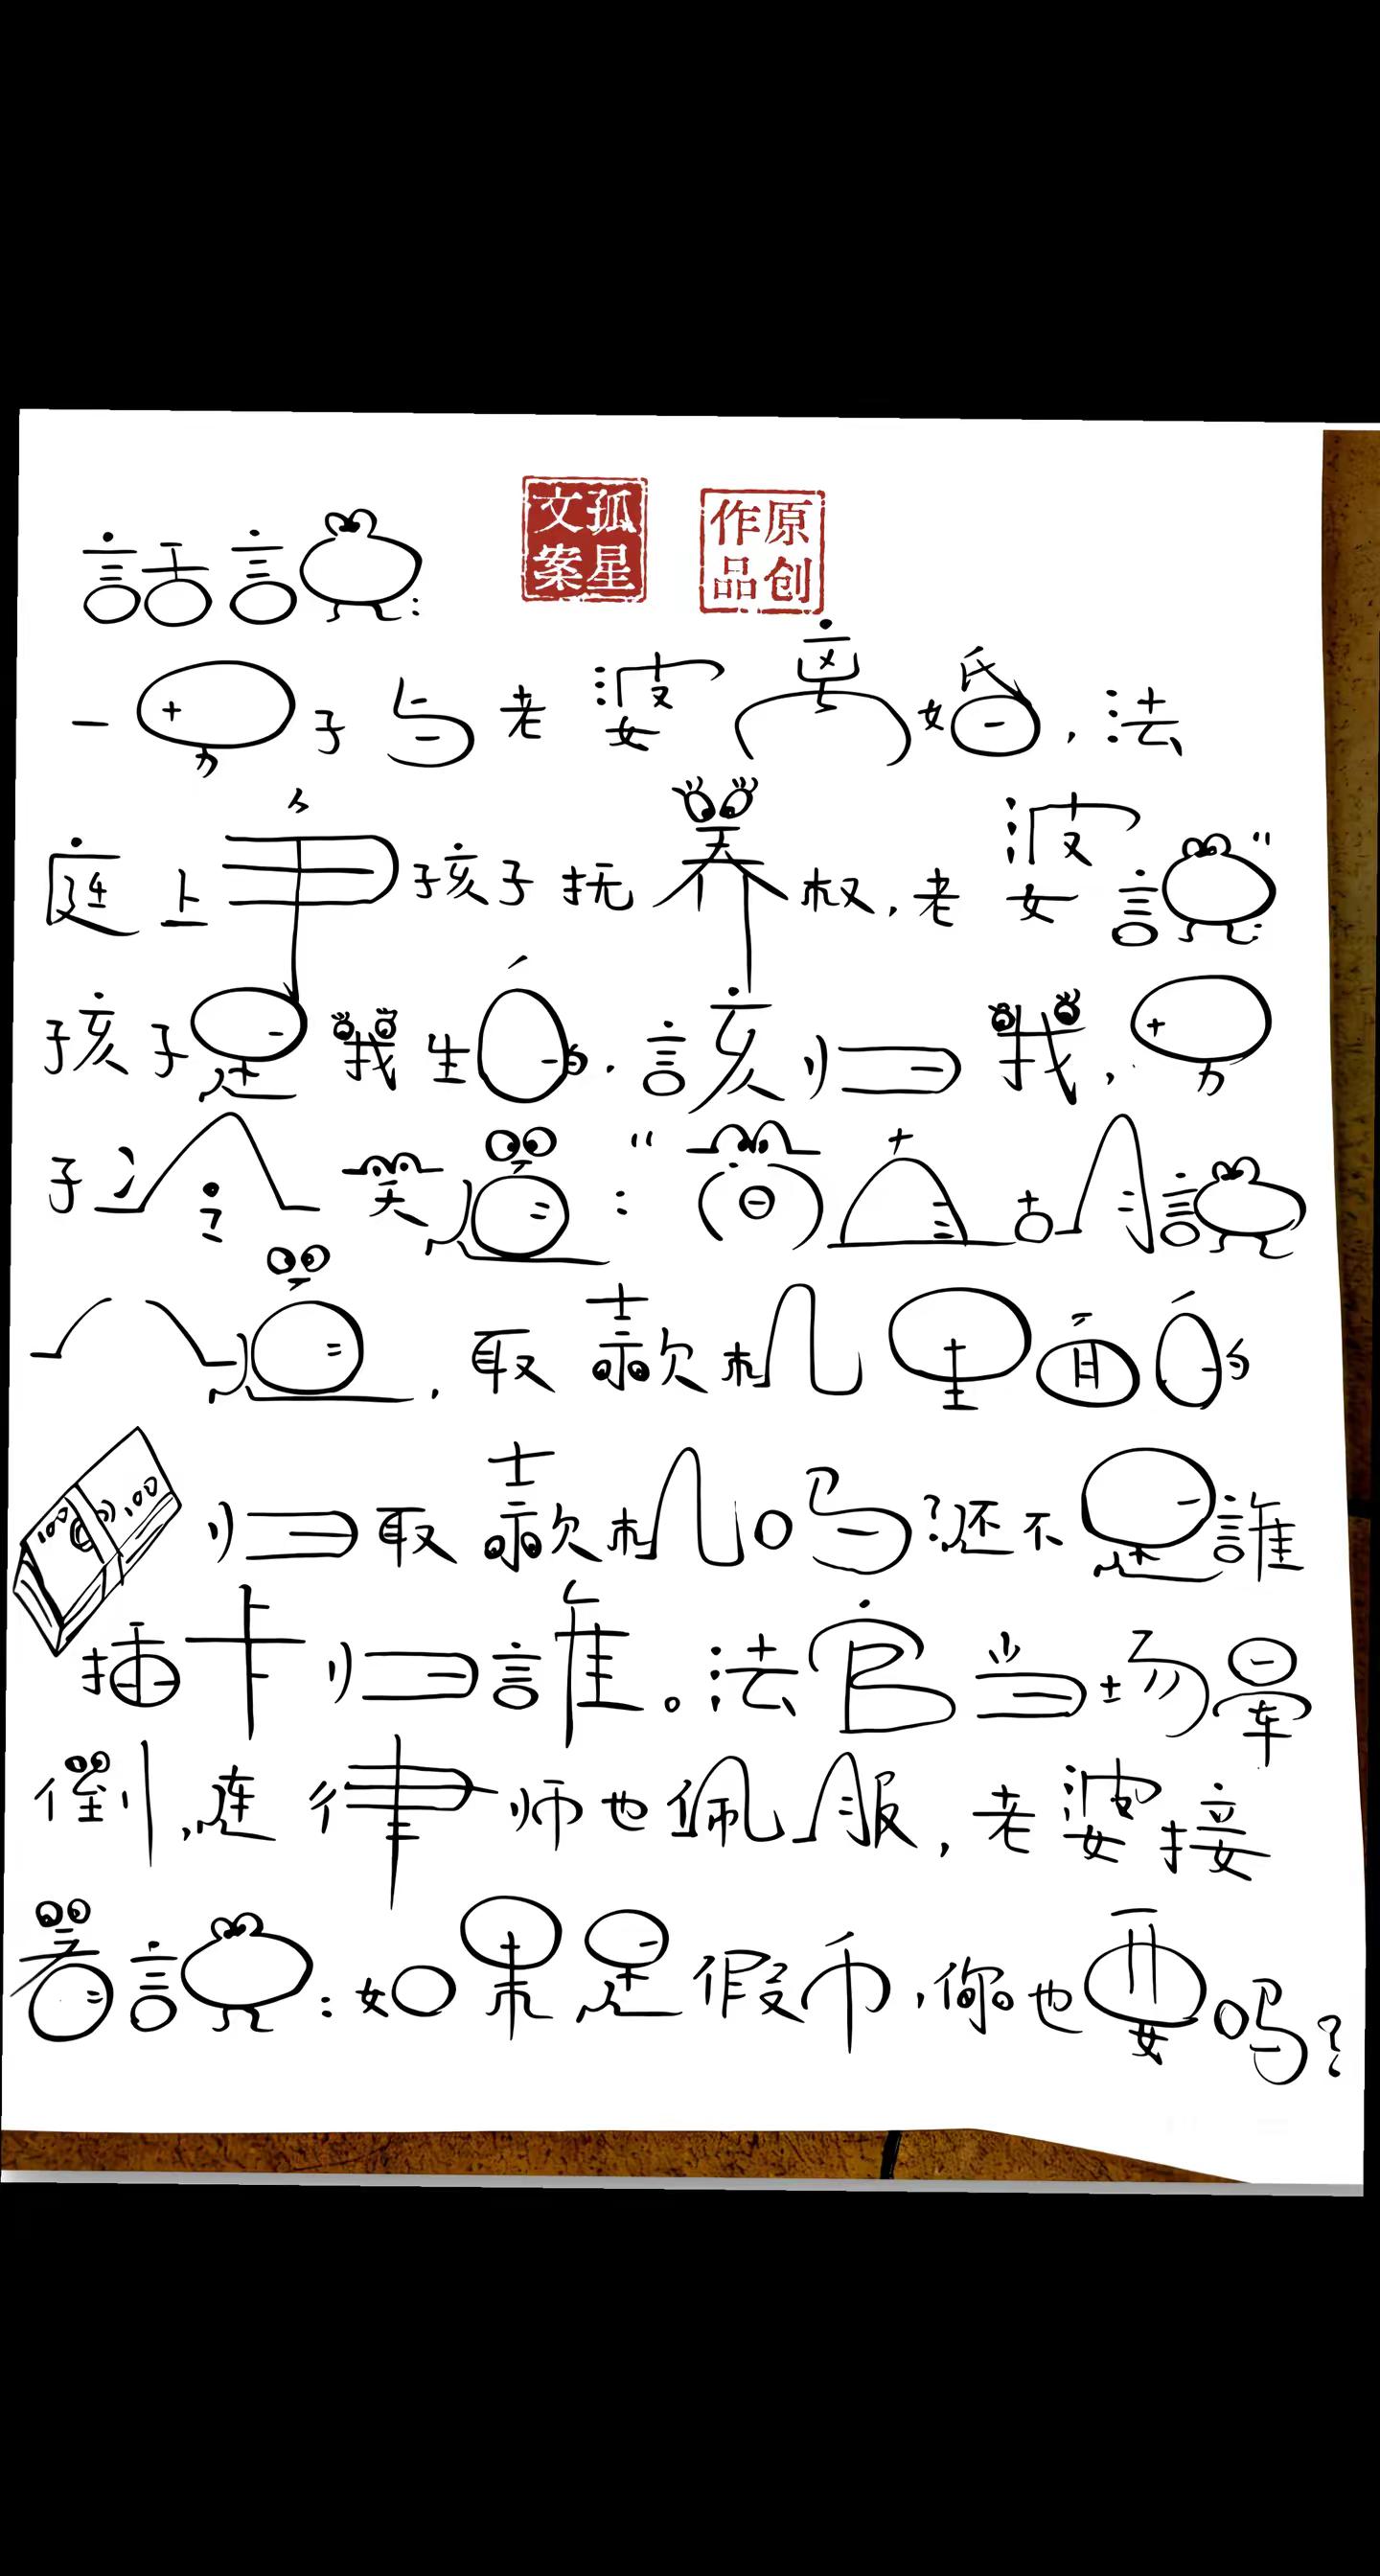 話說:
孤星文案
原创作品
一男子与老婆离婚,法
庭上争孩子抚养权,老婆說:"
孩子是我生的,該归我,男
子冷笑道:"简直胡說
八道,取款机里面的
归取款机吗?还不是誰
插卡归誰。法官当场晕
倒,连律师也佩服,老婆接
着說:如果是假币,你也要吗?